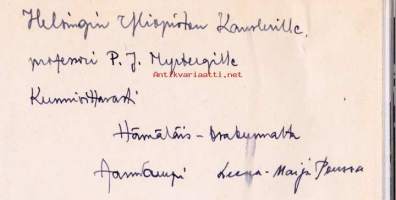 Helsingin Yliopiston Kanslerille,
professori P. J. Myrbergille
Antikvariaatti.net
Kunnioittavasti
Hämäläis-Osakunnalta
Leena-Maija